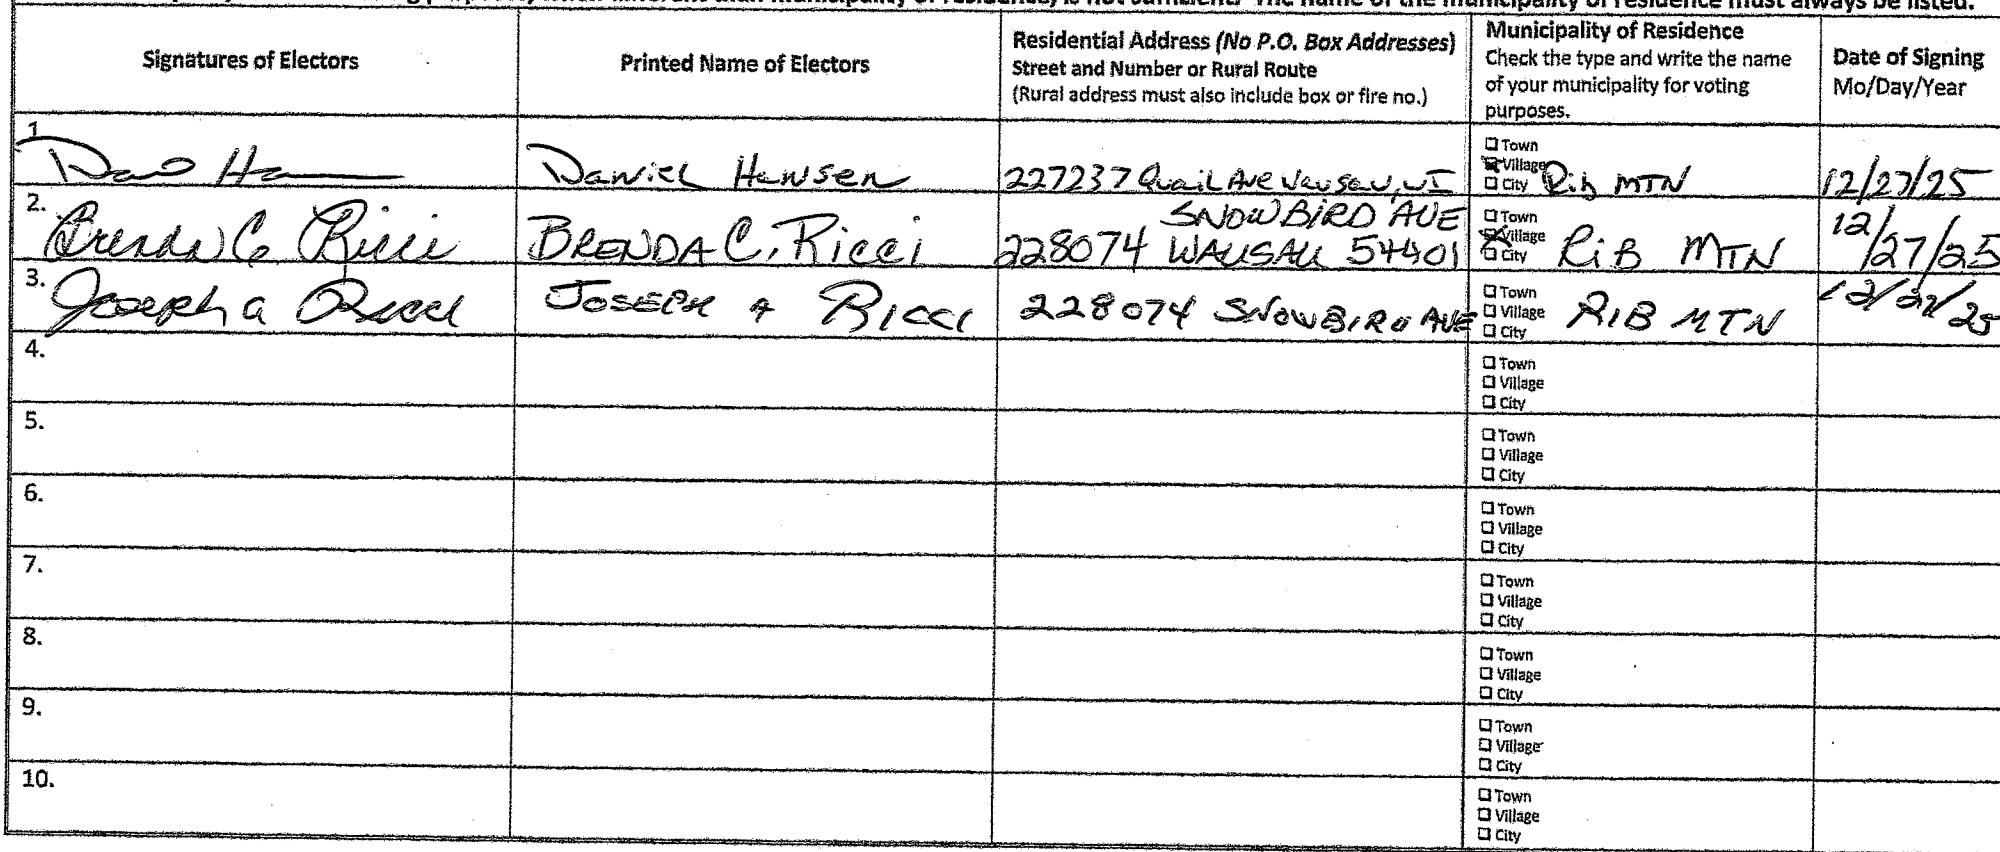 municipality of residence must always be listed.
Signatures of Electors
Printed Name of Electors
Residential Address (No P.O. Box Addresses)
Street and Number or Rural Route
(Rural address must also include box or fire no.)
Municipality of Residence
Check the type and write the name
of your municipality for voting
purposes.
Date of Signing
Mo/Day/Year
1.
Daniel Hansen
227237 Quail Ave Wausau, WI
Town
Village
City
Rib MTN
12/27/25
2.
Brenda C Ricci
BRENDA C. Ricci
SNOWBIRD AVE
228074 WAUSAU 54401
Town
Village
City
RiB MTN
12/27/25
3.
Joseph A Ricci
JOSEPH A RICCI
228074 SNOWBIRD AVE
Town
Village
City
RIB MTN
12/27/25
4.
Town
Village
City
5.
Town
Village
City
6.
Town
Village
City
7.
Town
Village
City
8.
Town
Village
City
9.
Town
Village
City
10.
Town
Village
City